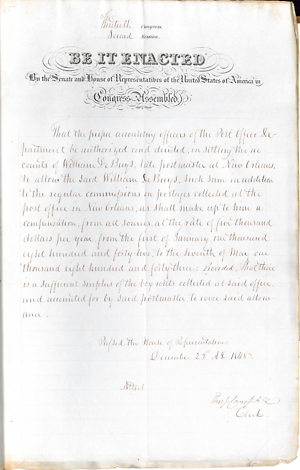 Thirtieth Congress
Second Session.
BE IT ENACTED
By the Senate and House of Representatives of the United States of America in
Congress Assembled,
That the proper accounting officers of the Post Office De-
partment be authorized and directed, in settling the ac
counts of William De Buys, late postmaster at New Orleans,
to allow the said William De Buys, such sum in addition
to the regular commissions on postages collected at the
post office in New Orleans, as shall make up to him a
compensation, from all sources, at the rate of five thousand
dollars per year, from the first of January one thousand
eight hundred and forty-two, to the seventh of May, one
thousand eight hundred and forty-three; Provided, That there
is a sufficient surplus of the box rents collected at said office
and accounted for by said postmaster to cover said allow-
ance.
Passed the House of Representatives
December 23d AD. 1848.
Attest
Clerk